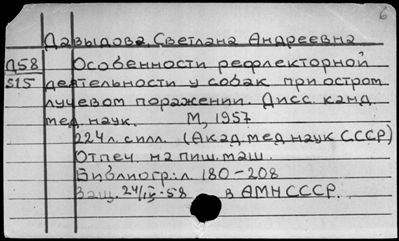 6
Давыдова, Светлана Андреевна
Д58 Особенности рефлекторной
515 деятельности у собак при остром
лучевом поражении. Дисс. канд.
мед. наук. М, 1957
224 л. с илл. (Акад. мед. наук СССР)
Отпеч. на пиш. маш.
Библиогр.: л. 180-208
Защ. 24/IV-58 в АМН СССР.